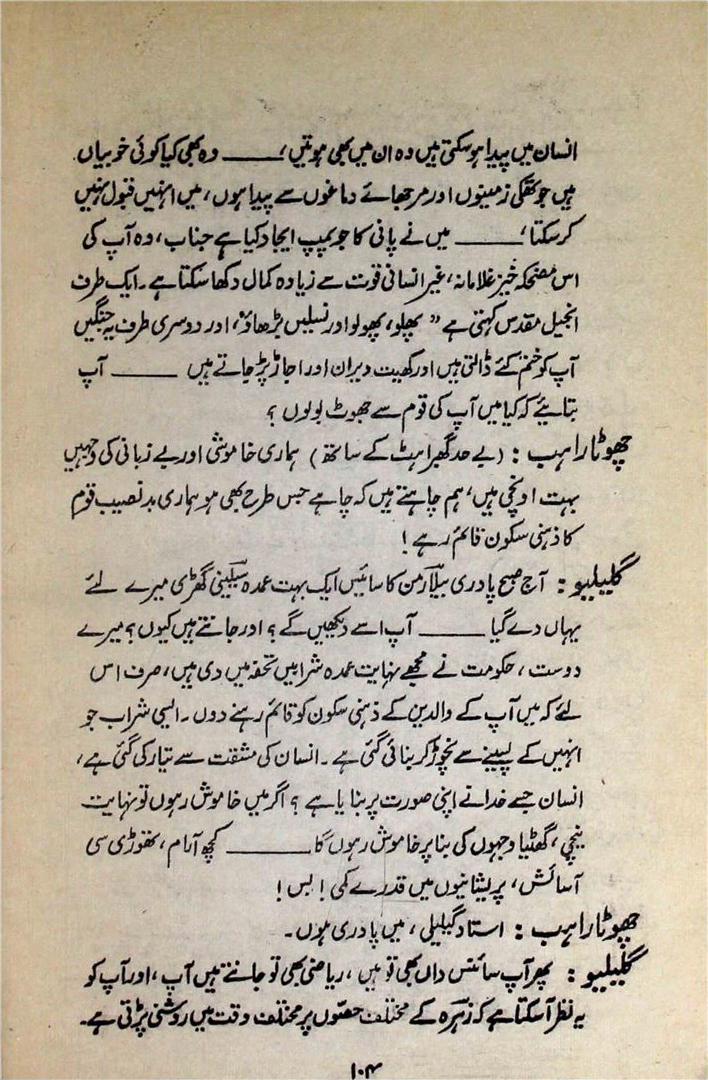 انسان میں پیدا ہو سکتی ہیں وہ ان میں بھی ہوتیں، ——— وہ بھی کیا کوئی خوبیاں
ہیں جو تھکی زمینوں اور مرجھائے دماغوں سے پیدا ہوں، میں انہیں قبول نہیں
کر سکتا، ——— میں نے پانی کا جو پمپ ایجاد کیا ہے جناب، وہ آپ کی
اس مضحکہ خیز غلامانہ، غیر انسانی قوت سے زیادہ کمال دکھا سکتا ہے۔ ایک طرف
انجیل مقدس کہتی ہے "پھلو، پھولو اور نسلیں بڑھاؤ"، اور دوسری طرف یہ جنگیں
آپ کو ختم کئے ڈالتی ہیں اور کھیت ویران اور اجاڑ پڑ جاتے ہیں ——— آپ
بتائیے کہ کیا میں آپ کی قوم سے جھوٹ بولوں ؟
چھوٹا راہب : (بے حد گھبراہٹ کے ساتھ) ہماری خاموشی اور بے زبانی کی وجہیں
بہت اونچی ہیں، ہم چاہتے ہیں کہ چاہے جس طرح بھی ہو ہماری بد نصیب قوم
کا ذہنی سکون قائم رہے !
گلیلیو : آج صبح پادری بیلارمن کا سائیں ایک بہت عمدہ سیلینی گھڑی میرے لئے
یہاں دے گیا ——— آپ اسے دیکھیں گے ؟ اور جانتے ہیں کیوں ؟ میرے
دوست، حکومت نے مجھے نہایت عمدہ شرابیں تحفہ میں دی ہیں، صرف اس
لئے کہ میں آپ کے والدین کے ذہنی سکون کو قائم رہنے دوں۔ ایسی شراب جو
انہیں کے پسینے سے نچوڑ کر بنائی گئی ہے۔ انسان کی مشقت سے تیار کی گئی ہے،
انسان جسے خدا نے اپنی صورت پر بنایا ہے ؟ اگر میں خاموش رہوں تو نہایت
نیچی، گھٹیا وجہوں کی بنا پر خاموش رہوں گا ——— کچھ آرام، تھوڑی سی
آسائش، پریشانیوں میں قدرے کمی ! بس !
چھوٹا راہب : استاد گیلیلی، میں پادری ہوں۔
گلیلیو : پھر آپ سائنس داں بھی تو ہیں، ریاضی بھی تو جانتے ہیں آپ، اور آپ کو
یہ نظر آ سکتا ہے کہ زہرہ کے مختلف حصّوں پر مختلف وقت میں روشنی پڑتی ہے۔
۱۰۴